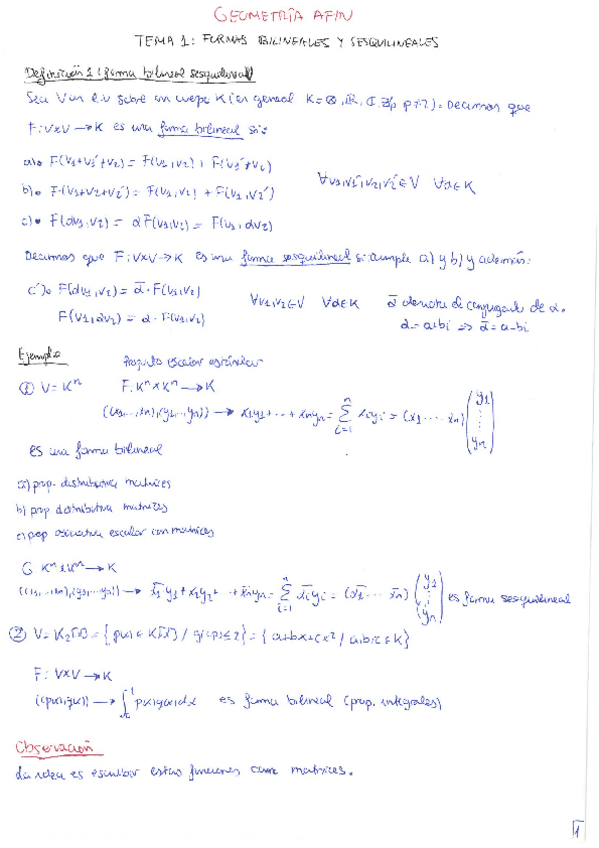 GEOMETRÍA AFIN
TEMA 1: FORMAS BILINEALES Y SESQUILINEALES
Definición 1 (forma bilineal sesquilineal)
Sea V un e.v sobre un cuerpo K (en general K = Q, R, C, Zp p≠2). Decimos que
F: V×V → K es una forma bilineal si:
a)• F(v1+v1'+v2) = F(v1,v2) + F(v1'+v2)
b)• F(v1+v2+v2') = F(v1,v2) + F(v1,v2') ∀v1,v1',v2,v2'∈V ∀α∈K
c)• F(αv1,v2) = αF(v1,v2) = F(v1,αv2)
Decimos que F: V×V → K es una forma sesquilineal si cumple a) y b) y además:
c')• F(αv1,v2) = ᾱ·F(v1,v2)
F(v1,αv2) = α·F(v1,v2) ∀v1,v2∈V ∀α∈K ᾱ denota de conjugado de α.
α = a+bi => ᾱ = a-bi
Ejemplo
Producto escalar
① V = Kⁿ F: Kⁿ×Kⁿ → K
((x1,..,xn),(y1,..,yn)) → x1y1+···+xnyn = Σ_{i=1}^{n} xiyi = (x1 ···· xn) (y1 ⋮ yn)
es una forma bilineal
a) prop. distributiva matrices
b) prop distributiva matrices
c) prop asociativa escalar con matrices
G Kⁿ×Kⁿ → K
((x1,..,xn),(y1,..,yn)) → x̄1y1+x̄2y2+ ··+x̄nyn = Σ_{i=1}^{n} x̄iyi = (x̄1 ··· x̄n) (y1 ⋮ yn) es forma sesquilineal
② V = K2[x] = {p(x) ∈ K[x] / gr(p) ≤ 2} = {a+bx+cx² / a,b,c ∈ K}
F: V×V → K
((p(x),q(x)) → ∫₀¹ p(x)q(x)dx es forma bilineal (prop. integrales)
Observación
La idea es escribir estas funciones como matrices.
1